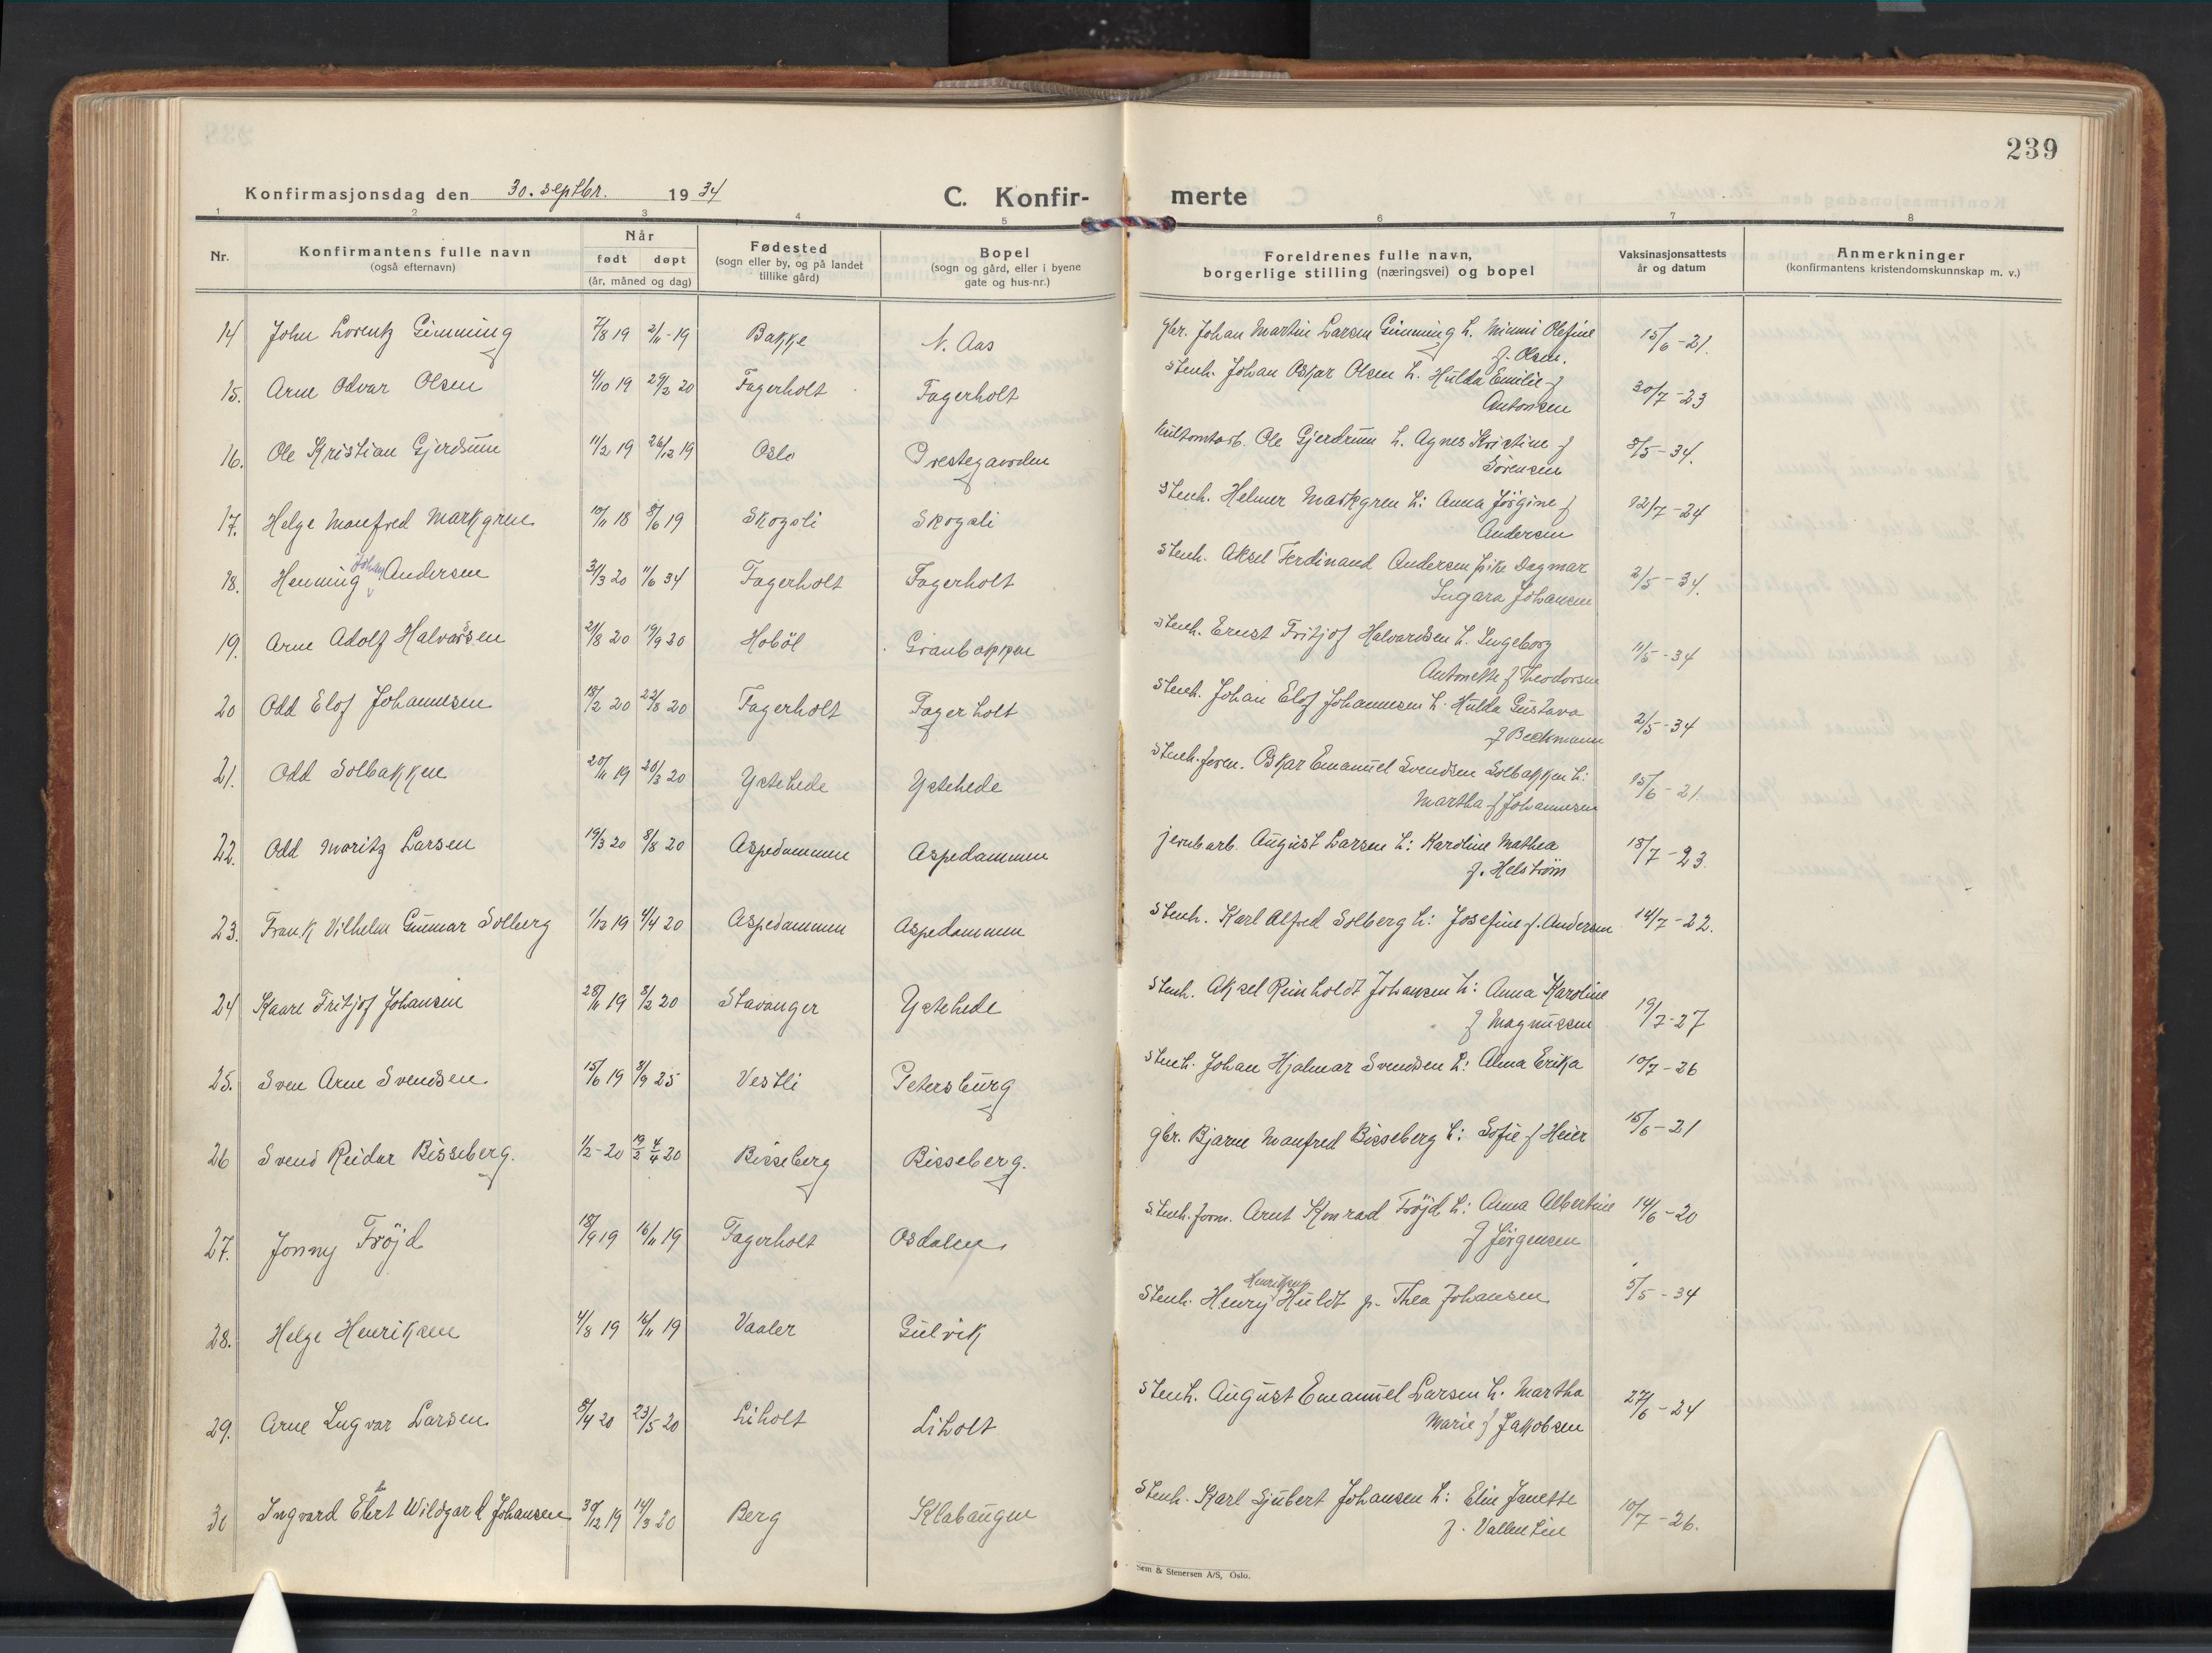 239
Konfirmasjonsdag den 30. septbr. 1934
C. Konfir-
merte
1 2 3 4 5 6 7 8
Nr.
Konfirmantens fulle navn
(også efternavn)
Når
født døpt
(år, måned og dag)
Fødested
(sogn eller by, og på landet
tillike gård)
Bopel
(sogn og gård, eller i byene
gate og hus-nr.)
Foreldrenes fulle navn,
borgerlige stilling (næringsvei) og bopel
Vaksinasjonsattests
år og datum
Anmerkninger
(konfirmantens kristendomskunnskap m. v.)
14 John Lorentz Gimming 7/8 19 2/11-19 Bakke N. Aas gbr. Johan Martin Larsen Gimming h. Minni Olefine 15/6-21.
f. Olsen.
15. Arne Odvar Olsen 4/10 19 29/2 20 Fagerholt Fagerholt stenh. Johan Oskar Olsen h. Hulda Emilie f 30/7-23
Antonsen
16. Ole Kristian Gjerdsum 11/2 19 26/12 19 Oslo Prestegaarden Ole Gjerdrum h. Agnes Kristine f 8/5-34.
Sørensen
17. Helge Manfred Markgren 10/11 18 8/6 19 Skogsli Skogsli Stenh. Helmer Markgren h: Anna Jørgine f 12/7-24
Andersen
18. Henning Johan Andersen 31/3 20 11/6 34 Fagerholt Fagerholt Stenh. Aksel Ferdinand Andersen pike Dagmar 2/5-34.
Ingara Johansen
19. Arne Adolf Halvorsen 21/8 20 19/9 20 Hobøl Granbakken stenh. Ernst Fritjof Halvardsen h. Ingeborg 11/5-34
Antonette f Theodorsen
20 Odd Elof Johannesen 18/2 20 22/8 20 Fagerholt Fagerholt Stenh. Johan Elof Johannesen h. Hulda Gustava 2/5-34
f Beckmann
21. Odd Solbakken 20/11 19 20/3 20 Ystehede Ystehede Stenh. form. Oskar Emanuel Svendsen Solbakken h: 15/6-21.
Martha f Johannesen
22. Odd Moritz Larsen 19/3 20 8/8 20 Aspedammen Aspedammen jernb arb. August Larsen h: Karoline Mathea 18/7-23.
f. Helstrøm
23. Frank Vilhelm Gunnar Solberg 1/12 19 4/4 20 Aspedammen Aspedammen Stenh. Karl Alfred Solberg h: Josefine f. Andersen 14/7-22.
24 Kaare Fritjof Johansen 28/11 19 8/2 20 Stavanger Ystehede Stenh. Aksel Reinholdt Johansen h: Anna Karoline 19/7-27
f Magnussen
25. Sven Arne Svendsen. 15/6 19 8/9 25 Vestli Petersburg Stenh. Johan Hjalmar Svendsen h: Alma Erika 10/7-26
26 Svend Reidar Bisseberg. 1/2-20 19/2 4/4 20 Bisseberg Bisseberg. gbr. Bjarne Manfred Bisseberg h: Sofie f Heier 15/6-21
27. Jonny Frøjd 18/9 19 16/11 19 Fagerholt Osdalen Stenh. form. Arnt Konrad Frøjd h: Anna Albertine 14/6-20
f Jørgensen
28. Helge Henriksen 4/8 19 16/11 19 Vaaler Gulvik Stenh. Henry Henriksen Huldt p. Thea Johansen 5/5-34
29. Arne Ingvar Larsen 8/4 20 23/5 20 Liholt Liholt Stenh. August Emanuel Larsen h. Martha 27/6-24
Marie f Jakobsen
30 Ingvard Ebert Wildgard Johansen 30/12 19 14/3 20 Berg Klabaugen Stenh. Karl Sjubert Johansen h: Elin Janette 10/7-26.
f. Vallentin
Sem & Stenersen A/S, Oslo.